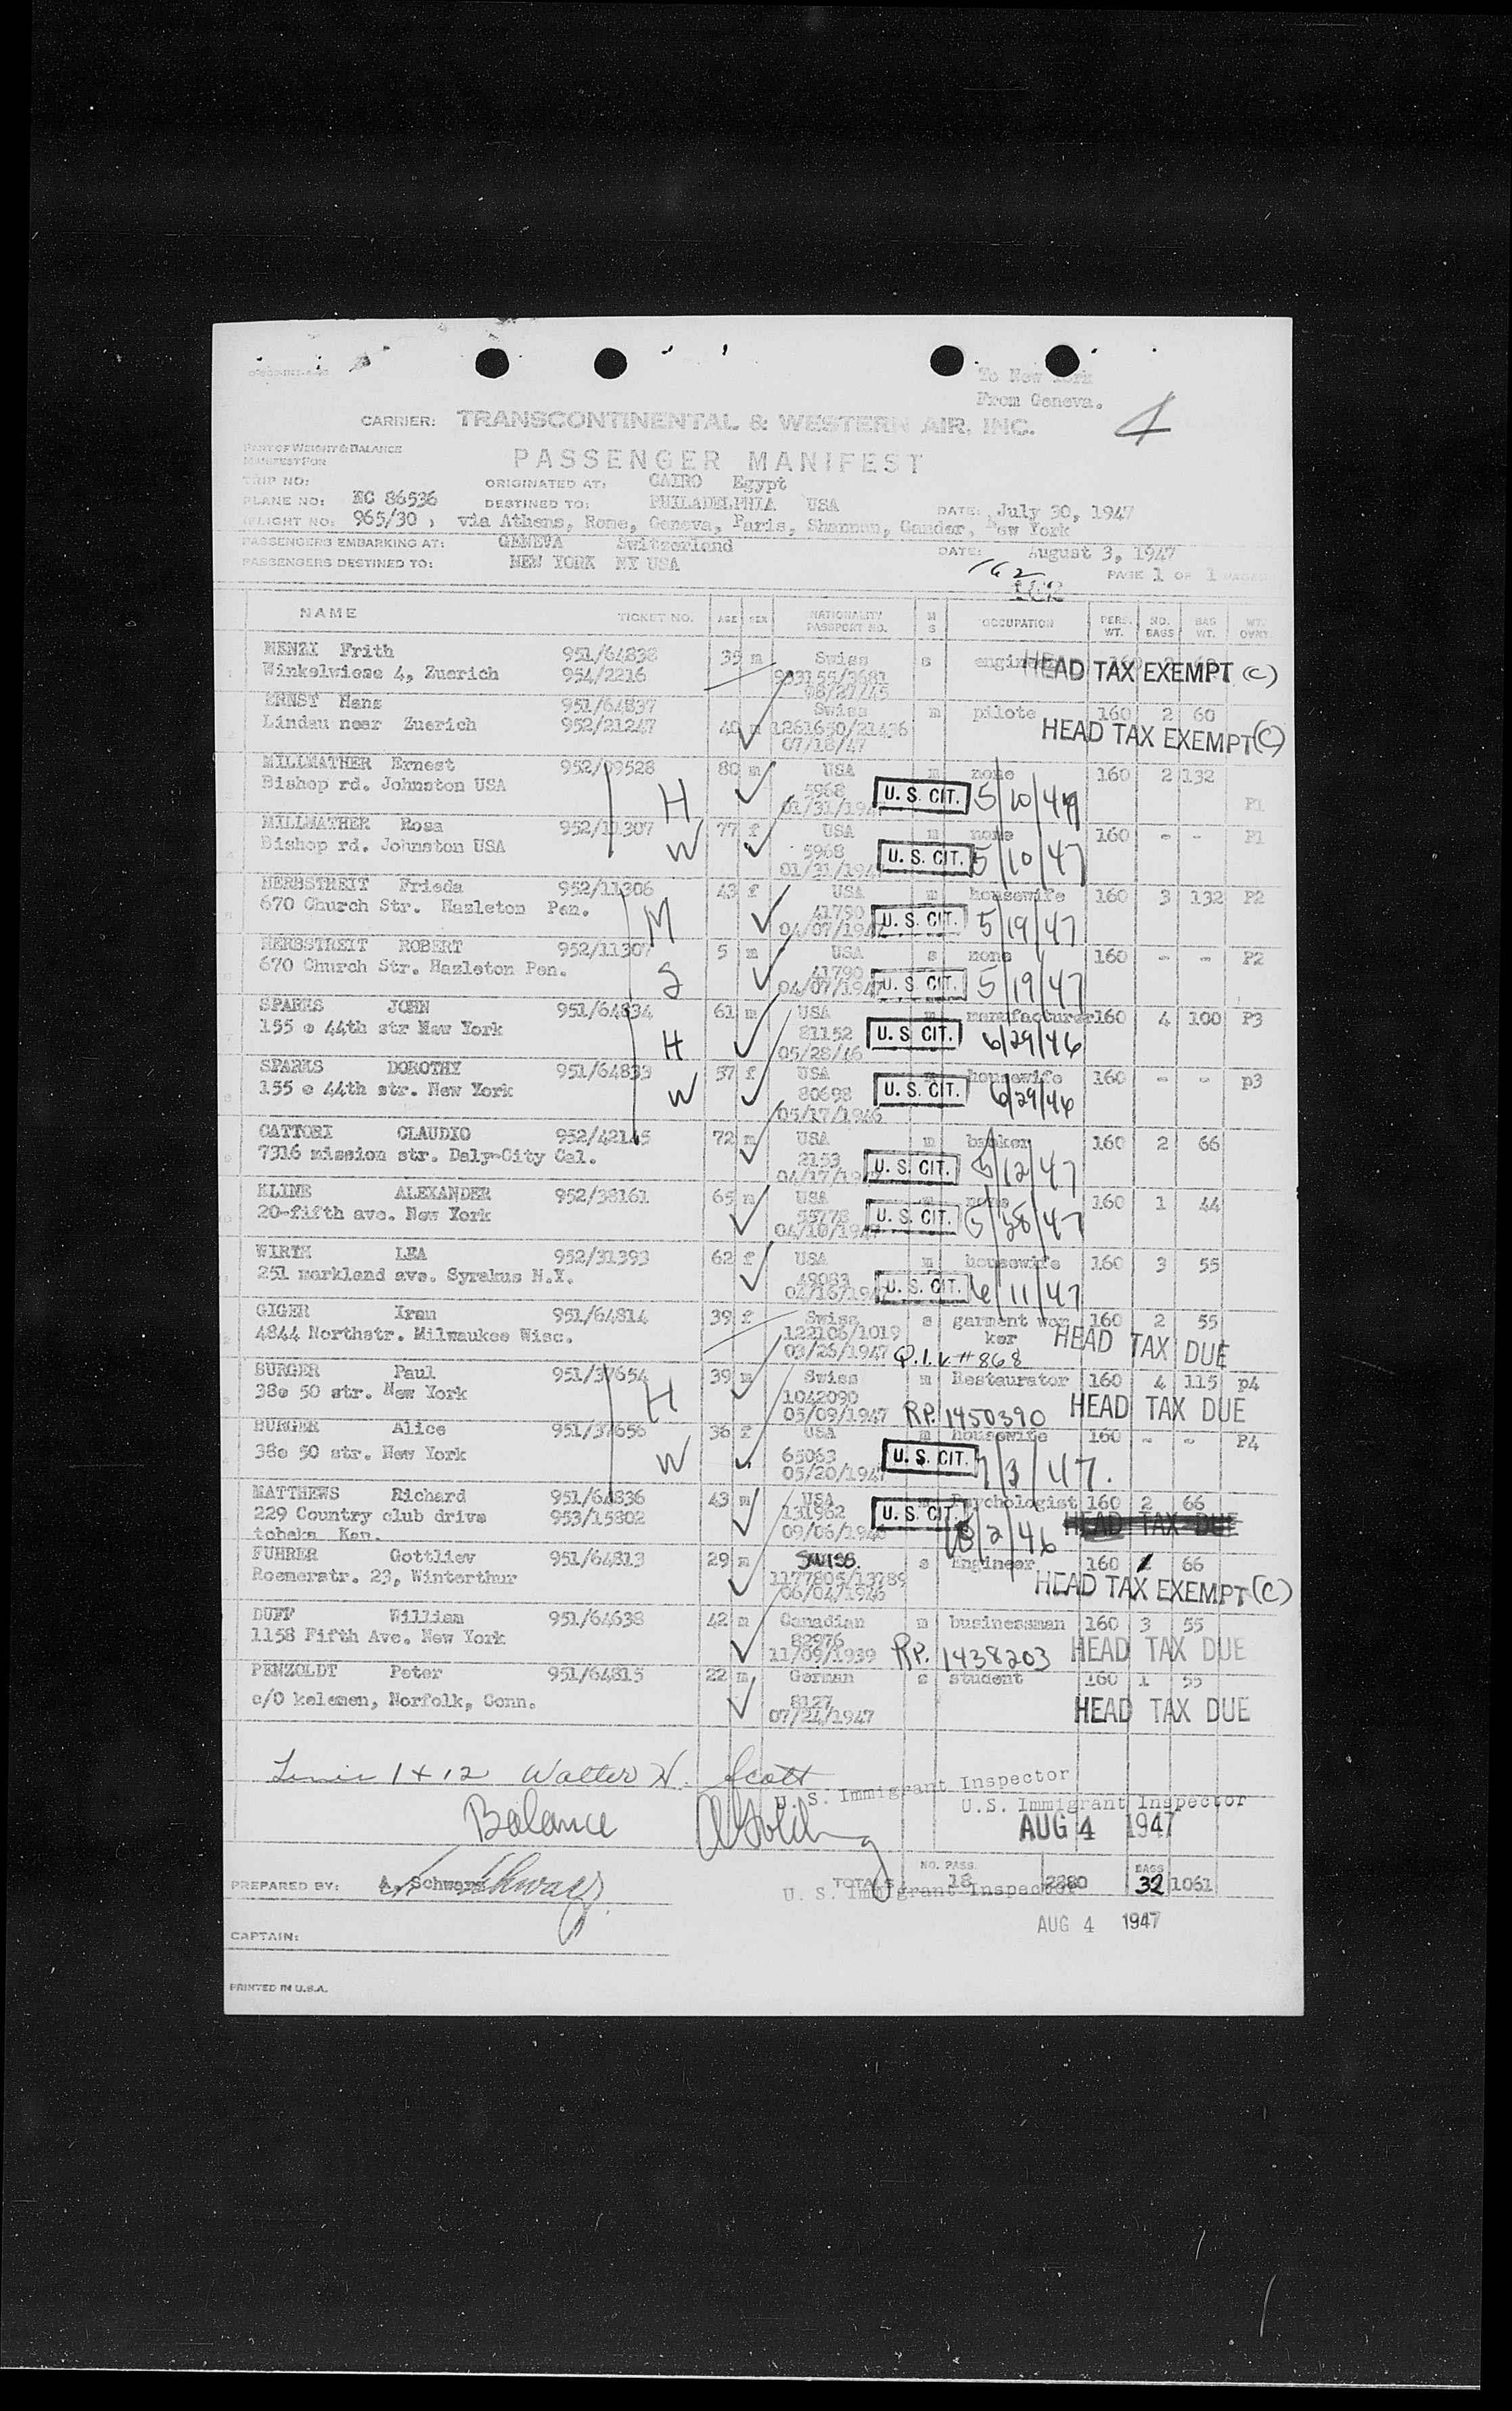 To New York
From Geneva.
4
CARRIER: TRANSCONTINENTAL & WESTERN AIR, INC.
PART OF WEIGHT & BALANCE
MANIFEST FOR
PASSENGER MANIFEST
TRIP NO: ORIGINATED AT: CAIRO Egypt
PLANE NO: NC 86536 DESTINED TO: PHILADELPHIA USA DATE: July 30, 1947
FLIGHT NO: 965/30, via Athens, Rome, Geneva, Paris, Shannon, Gander, New York
PASSENGERS EMBARKING AT: GENEVA Switzerland DATE: August 3, 1947
PASSENGERS DESTINED TO: NEW YORK NY USA PAGE 1 OF 1 PAGES
162
NAME TICKET NO. AGE SEX NATIONALITY PASSPORT NO. M S OCCUPATION PERS. WT. NO. BAGS BAG WT. WT. OVNT.
MENZI Frith 951/64838 35 m Swiss s
Winkelwiese 4, Zuerich 954/2216 993155/3681 HEAD TAX EXEMPT (C)
08/27/45
ERNST Hans 951/64837 Swiss m pilote 160 2 60
Lindau near Zuerich 952/21247 40 m 1261650/21436 HEAD TAX EXEMPT (C)
07/18/47
MILLMATHER Ernest 952/09528 80 m USA m none 160 2 132
Bishop rd. Johnston USA H 5968 U.S. CIT. 5/10/47 P1
01/31/1947
MILLMATHER Rosa 952/11307 77 f USA m none 160 - - P1
Bishop rd. Johnston USA W 5968 U.S. CIT. 5/10/47
01/31/1947
HERBSTREIT Frieda 952/11306 43 f USA m housewife 160 3 132 P2
670 Church Str. Hazleton Pen. M 41790 U.S. CIT. 5/19/47
04/07/1947
HERBSTREIT ROBERT 952/11307 5 m USA s none 160 - - P2
670 Church Str. Hazleton Pen. S 41790 U.S. CIT. 5/19/47
04/07/1947
SPARKS JOHN 951/64834 61 m USA m manufacturer 160 4 100 P3
155 e 44th str New York H 81152 U.S. CIT. 6/29/46
05/28/46
SPARKS DOROTHY 951/64833 57 f USA m housewife 160 - - p3
155 e 44th str. New York W 80698 U.S. CIT. 6/29/46
05/17/1946
CATTORI CLAUDIO 952/42145 72 m USA m banker 160 2 66
7316 mission str. Daly-City Cal. 2153 U.S. CIT. 5/12/47
04/17/1947
KLINE ALEXANDER 952/38161 65 m USA m none 160 1 44
20-fifth ave. New York 55778 U.S. CIT. 5/28/47
04/10/1947
WIRTH LEA 952/31393 62 f USA m housewife 160 3 55
251 markland ave. Syrakus N.Y. 49083 U.S. CIT. 6/11/47
04/16/1947
GIGER Iran 951/64814 39 f Swiss s garment wor 160 2 55
4844 Northstr. Milwaukee Wisc. 122106/1019 ker HEAD TAX DUE
03/26/1947 Q.I.V. #868
BURGER Paul 951/37654 39 m Swiss m Restaurator 160 4 115 p4
38e 50 str. New York H 1042090 HEAD TAX DUE
05/09/1947 RP. 1450390
BURGER Alice 951/37656 36 f USA m housewife 160 - - P4
38e 50 str. New York W 65063 U.S. CIT. 7/3/47.
05/20/1947
MATTHEWS Richard 951/64836 43 m USA m Psychologist 160 2 66
229 Country club drive 953/15802 131962 U.S. CIT. 8/2/46 HEAD TAX DUE
topeka Kan. 09/06/1946
FUHRER Gottliev 951/64813 29 m SWISS. s Engineer 160 66
Roemerstr. 23, Winterthur 1177805/13789 HEAD TAX EXEMPT (C)
06/04/1946
DUFF William 951/64638 42 m Canadian m businessman 160 3 55
1158 Fifth Ave. New York 82976 RP. 1438203 HEAD TAX DUE
11/09/1939
PENZOLDT Peter 951/64815 22 m German s student 160 1 55
c/O kelemen, Norfolk, Conn. 8127 HEAD TAX DUE
07/24/1947
1 + 12 Walter H. Scott
U. S. Immigrant Inspector
U.S. Immigrant Inspector
Balance
AUG 4 1947
PREPARED BY: A. Schwarz TOTALS NO. PASS. 18 2880 BAGS 32 1061
U. S. Immigrant Inspector
AUG 4 1947
CAPTAIN:
PRINTED IN U.S.A.